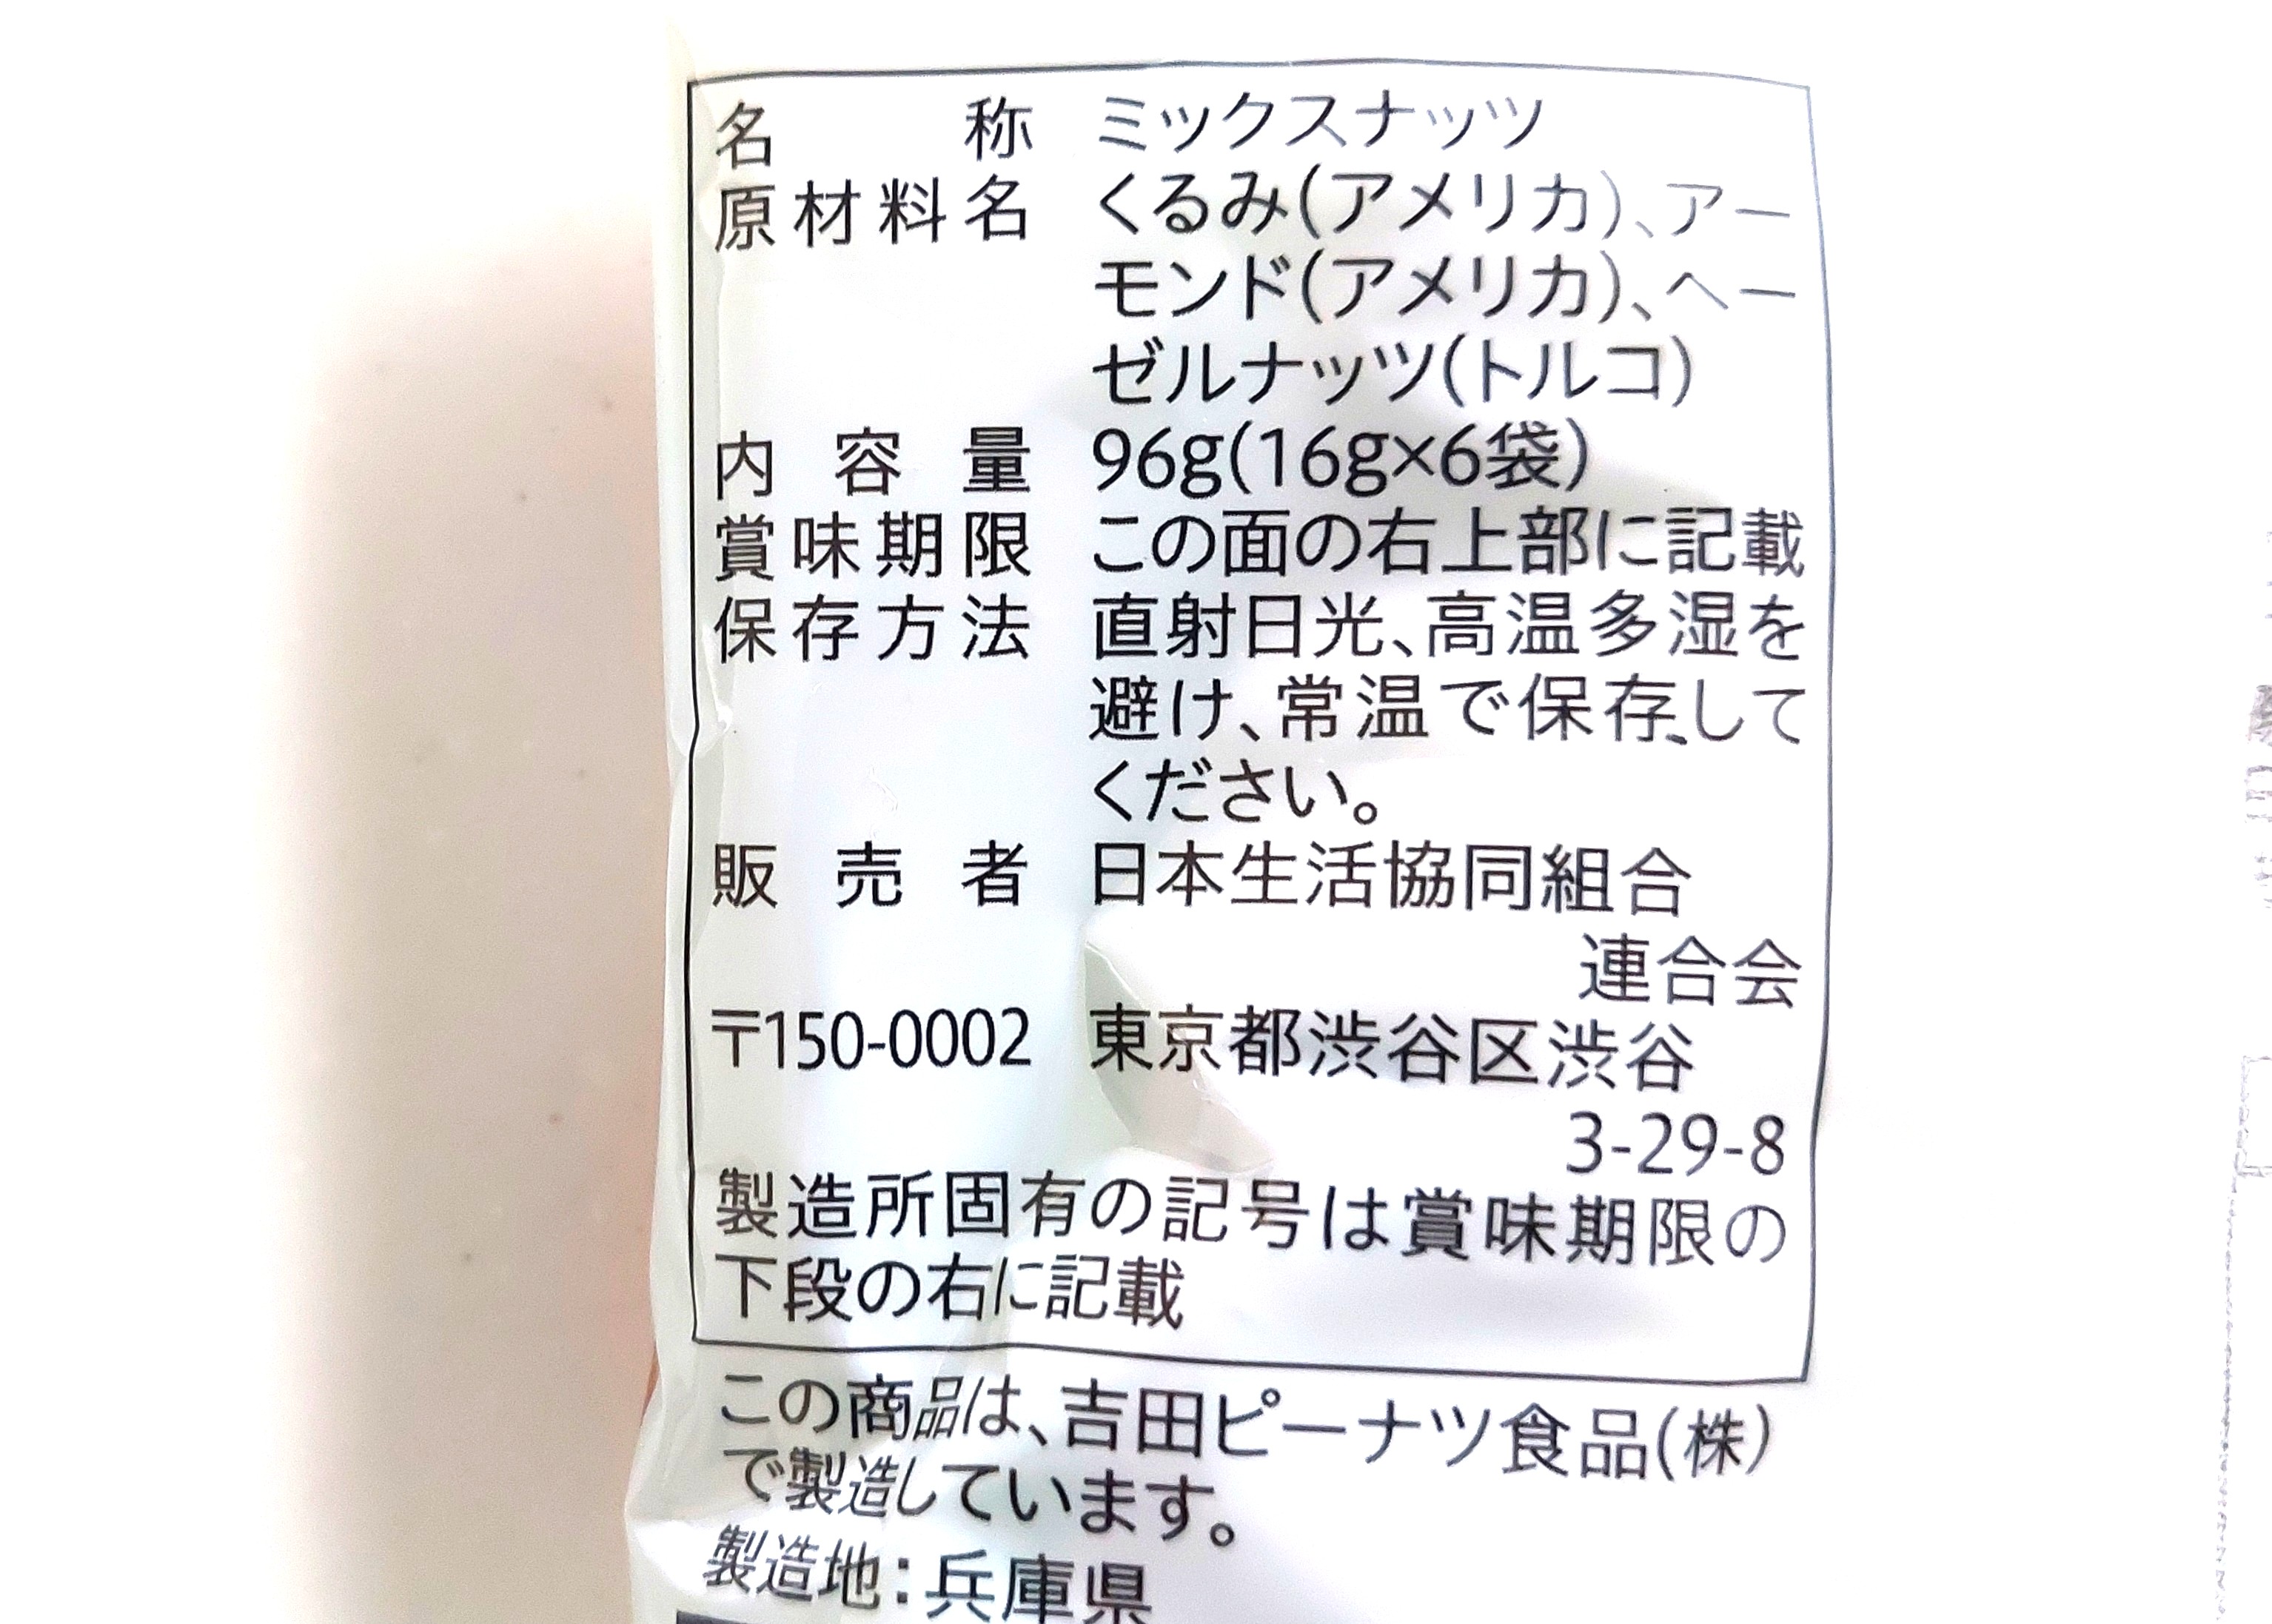 名称 ミックスナッツ
原材料名 くるみ(アメリカ)、アー
モンド(アメリカ)、ヘー
ゼルナッツ(トルコ)
内容量 96g(16g×6袋)
賞味期限 この面の右上部に記載
保存方法 直射日光、高温多湿を
避け、常温で保存して
ください。
販売者 日本生活協同組合
連合会
〒150-0002 東京都渋谷区渋谷
3-29-8
製造所固有の記号は賞味期限の
下段の右に記載
この商品は、吉田ピーナツ食品(株)
で製造しています。
製造地：兵庫県